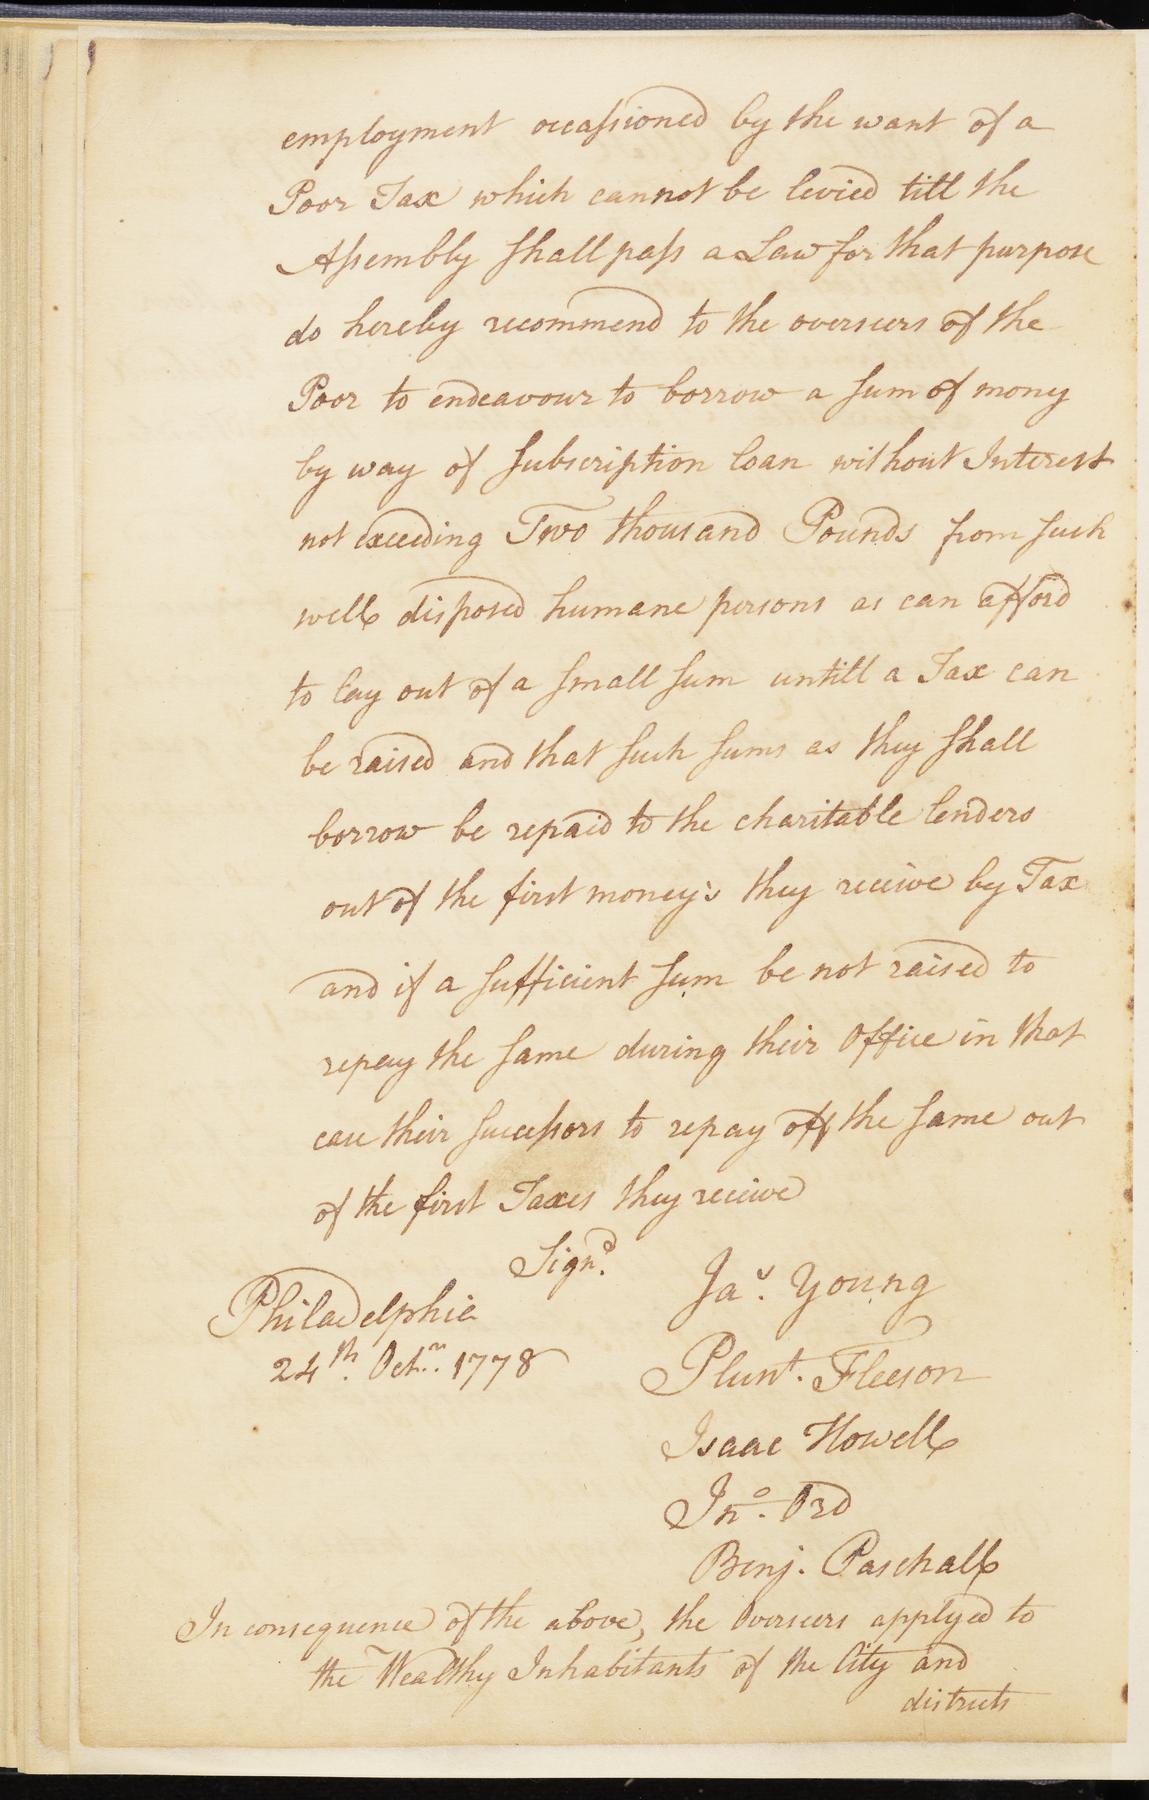 employment occassioned by the want of a
Poor Tax which cannot be levied till the
Assembly shall pass a Law for that purpose
do hereby recommend to the overseers of the
Poor to endeavour to borrow a sum of mony
by way of subscription loan without Interest
not exceeding Two thousand Pounds from such
well disposed humane persons as can afford
to lay out of a small sum untill a Tax can
be raised and that such sums as they shall
borrow be repaid to the charitable lenders
out of the first money's they receive by Tax
and if a sufficient sum be not raised to
repay the same during their Office in that
case their successors to repay off the same out
of the first Taxes they receive
Sign.d
Jas. Young
Philadelphia
24th. Octr. 1778
Plunt. Fleeson
Isaac Howell
Jno. Ord
Benj. Paschall
In consequence of the above, the Overseers applyed to
the Wealthy Inhabitants of the City and
districts